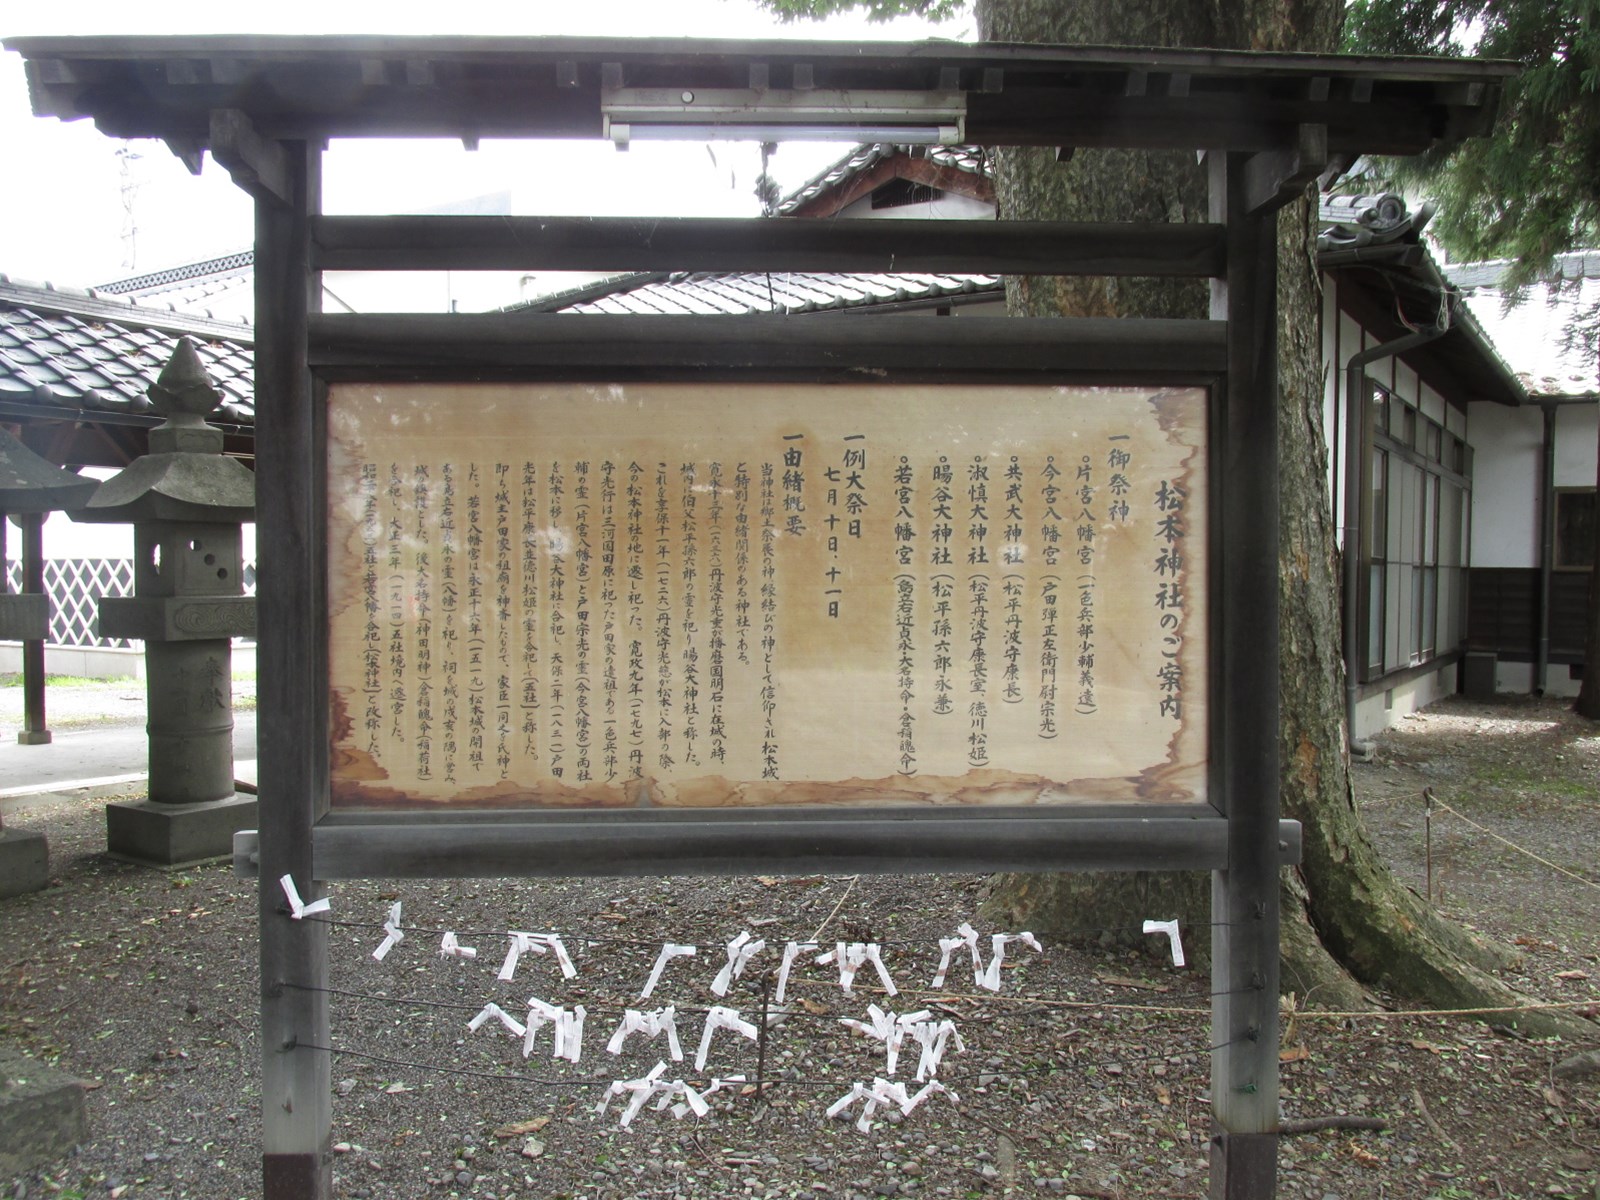 松本神社のご案内
一御祭神
片宮八幡宮(一色兵部少輔義遠)
今宮八幡宮(戸田弾正左衛門尉宗光)
共武大神社(松平丹波守康長)
淑慎大神社(松平丹波守康長室、徳川松姫)
暘谷大神社(松平孫六郎永兼)
若宮八幡宮(島立右近貞永・大名持命・倉稲魄命)
一例大祭日
七月十日・十一日
一由緒概要
当神社は郷土発展の神、縁結びの神として信仰され松本城
と特別な由緒関係のある神社である。
寛永十年(一六三三)丹波守光重が播磨国明石に在城の時、
城内に伯父松平孫六郎の霊を祀り暘谷大神社と称した。
これを享保十一年(一七二六)丹波守光慈が松本に入部の際、
今の松本神社の地に遷し祀った。寛政九年(一七九七)丹波
守光行は三河国田原に祀った戸田家の遠祖である一色兵部少
輔の霊(片宮八幡宮)と戸田宗光の霊(今宮八幡宮)の両社
を松本に移し暘谷大神社に合祀し、天保二年(一八三一)戸田
光年は松平康長並徳川松姫の霊を合祀して(五社)と称した。
即ち城主戸田家の祖廟を神斎したもので、家臣一同之を氏神と
した。若宮八幡宮は永正十六年(一五一九)松本城の開祖で
ある島立右近貞永の霊(八幡)を祀り、祠を城の戌亥の隅に営み、
城の鎮護とした。後大名持命(神田明神)倉稲魄命(稲荷社)
を合祀し、大正三年(一九一四)五社境内へ遷宮した。
五社と若宮八幡を合祀し(松本神社)と改称した。
奉献